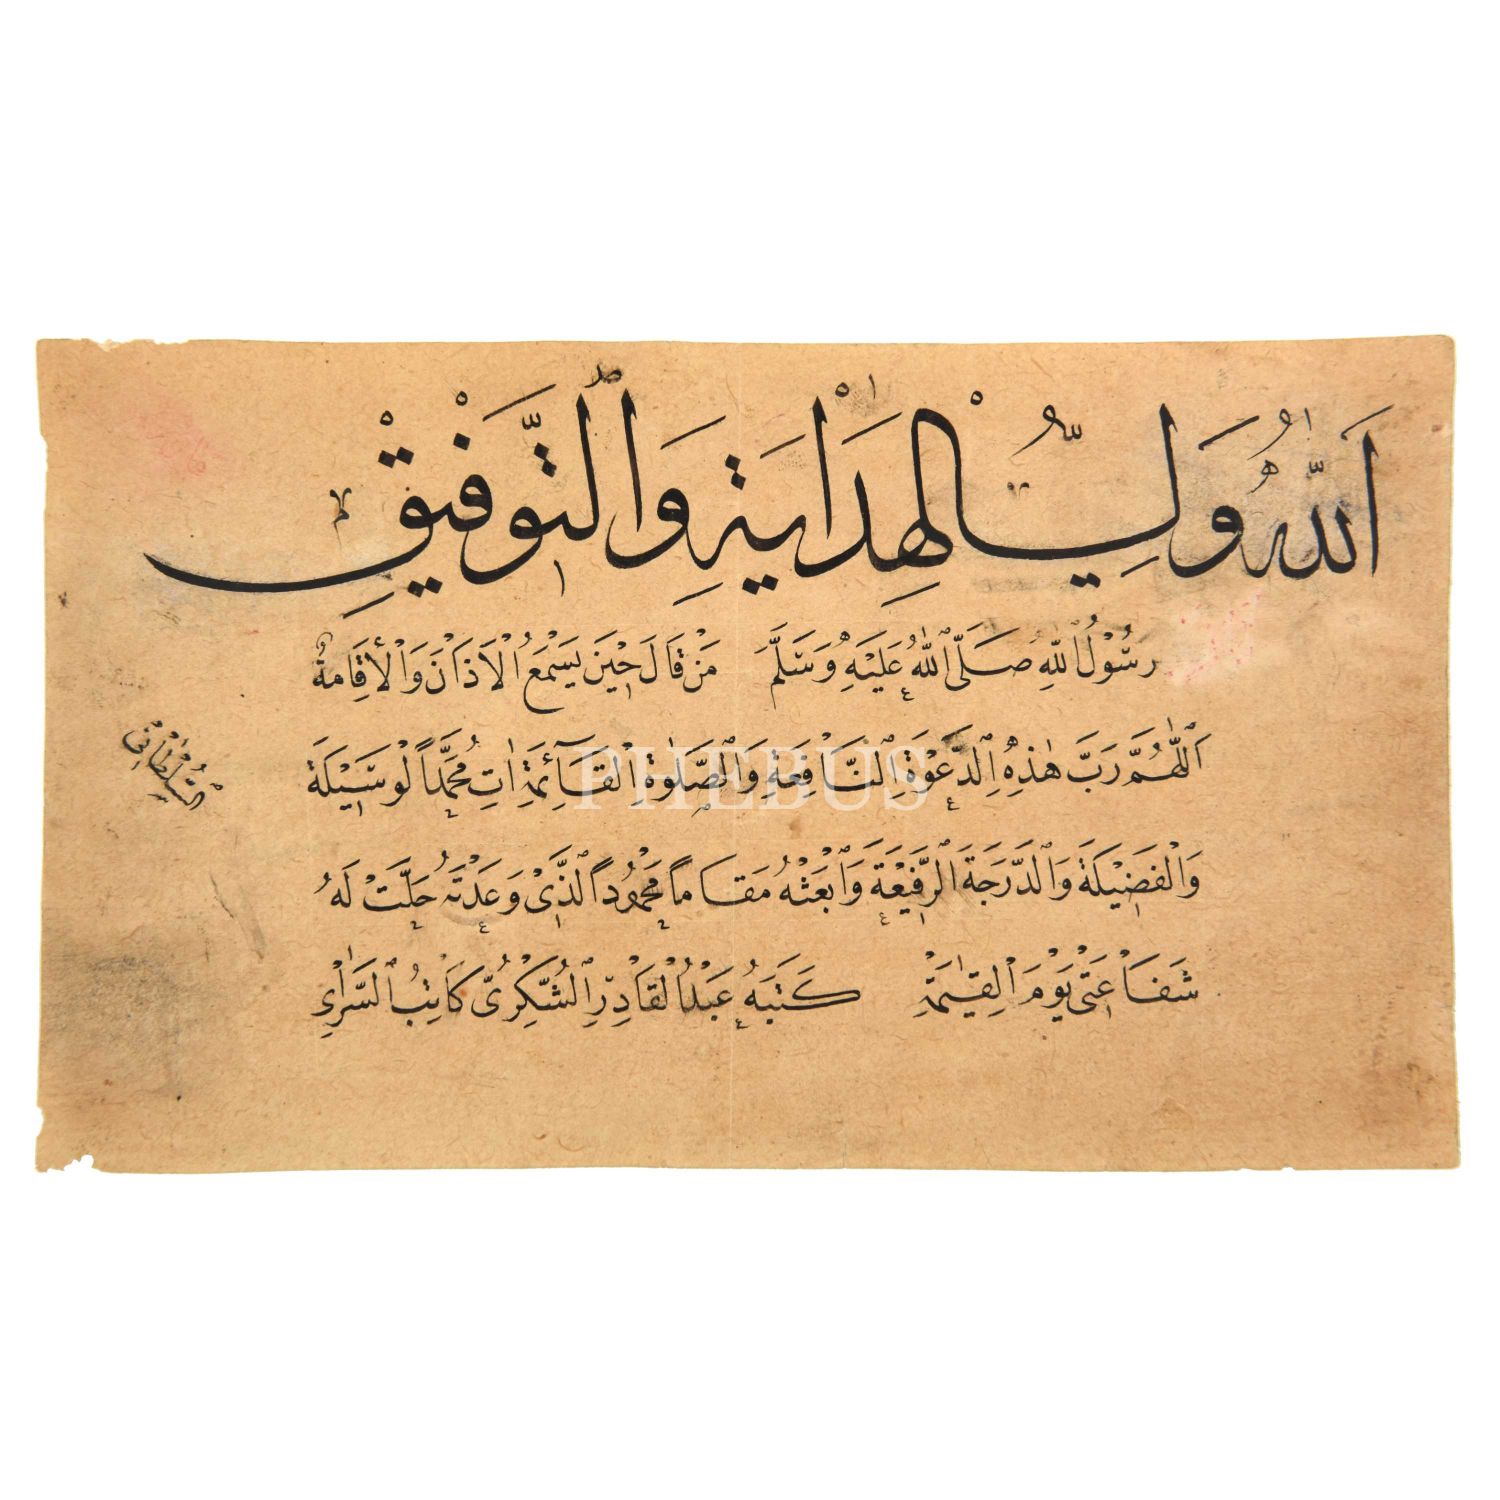 اَللهُ وَلِيُّ الْهِدَايَةِ وَالتَّوْفِيْقِ
رَسُوْلُ اللهِ صَلَّى اللهُ عَلَيْهِ وَسَلَّمَ مَنْ قَالَ حِيْنَ يَسْمَعُ الْاَذَانَ وَالْاِقَامَةَ
اَللّٰهُمَّ رَبَّ هٰذِهِ الدَّعْوَةِ النَّافِعَةِ وَالصَّلٰوةِ الْقَآئِمَةِ اٰتِ مُحَمَّداً الْوَسَيْلَةَ
وَالْفَضِيْلَةَ وَالدَّرَجَةَ الرَّفِيْعَةَ وَابْعَثْهُ مَقَاماً مَحْمُوْداً الَّذِىْ وَعَدْتَهُ حَلَّتْ لَهُ
شَفَاعَتِىْ يَوْمَ الْقِيٰمَةِ كَتَبَهُ عَبْدُ الْقَادِرِ الشُّكْرِىُّ كَاتِبُ السَّرَاىِ
السُّلْطَانِى
PHEBUS